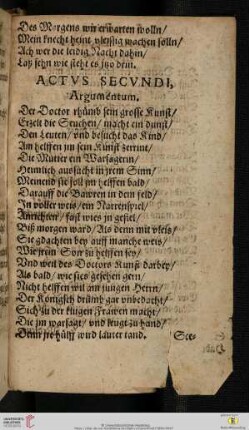 Des Morgens wir erwarten wolln/
Mein knecht heint fleissig wachen solln/
Ach wer die leidig Nacht dahin/
Laß sehn wie steht es jtzo drin.
ACTVS SECVNDI,
Argumentum.
Der Doctor rhümd sein grosse Kunst/
Erzelt die Seuchen/ macht ein dunst/
Den Leuten/ vnd besucht das Kind/
Am helffen jm sein Kunst zerrint/
Die Mütter ein Warsagerin/
Heimlich aussucht in jrem Sinn/
Meinend sie soll jm helffen bald/
Darauff die Bawren in dem feld/
In voller weis/ ein Narrenspiel/
Anrichten/ fast wies jn gefiel/
Biß morgen ward/ Als denn mit vleis/
Sie gdachten bey auff manche weis/
Wie jrem Son zu helffen sey/
Vnd weil des Doctors Kunst darbey/
Als bald/ wie sies gesehen gern/
Nicht helffen wil am jungen Herrn/
Der Königsch drümb gar vnbedacht/
Sich zu der klugen Frawen macht/
Die jm warsagt/ vnd leugt zu hand/
Denn jre hülff wird lauter tand.
Sce-